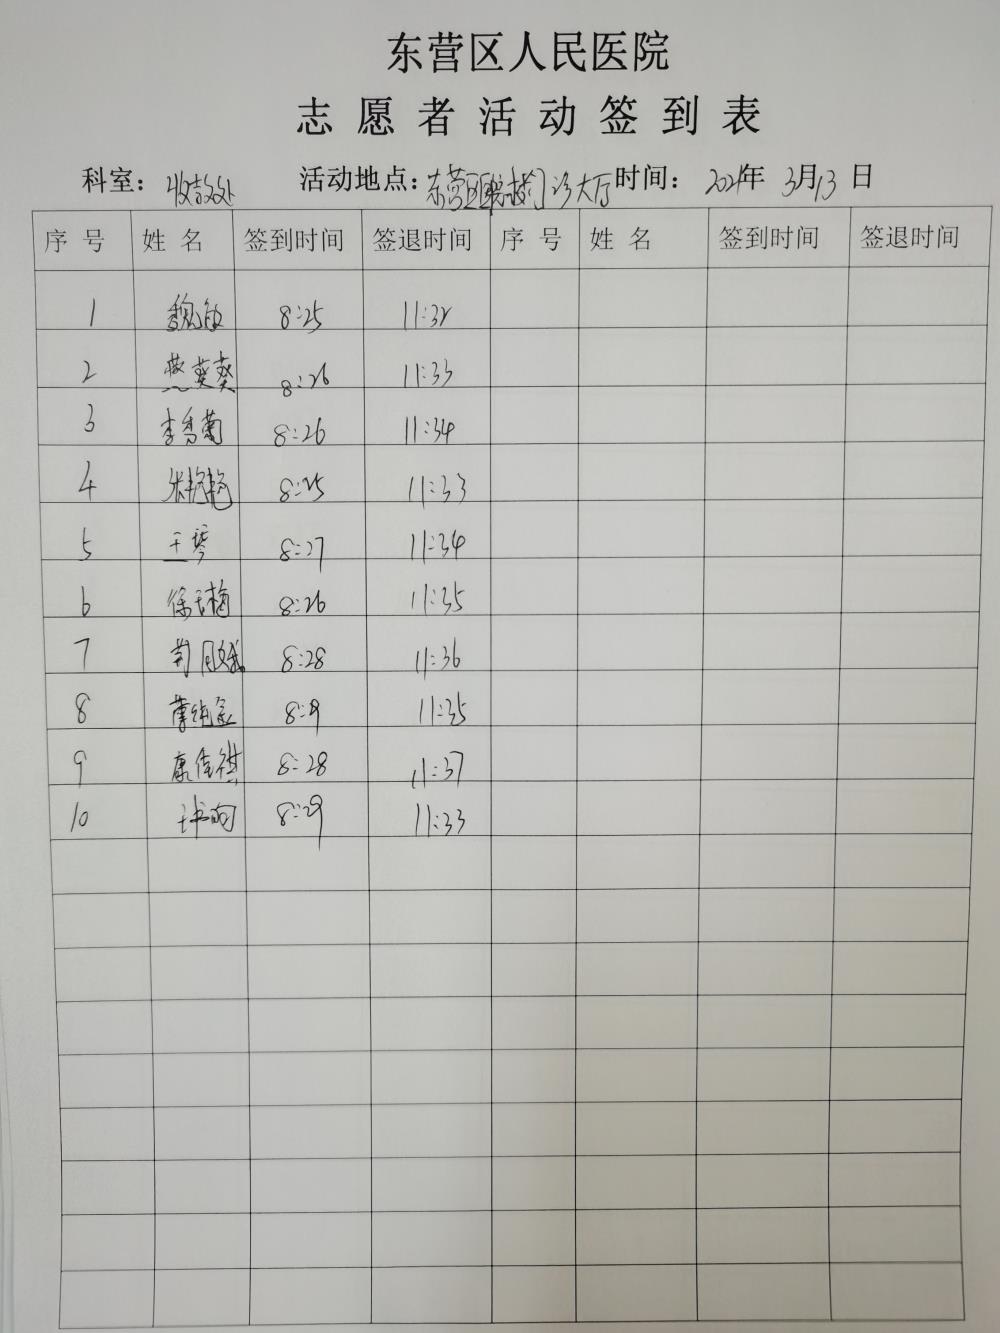 东营区人民医院
志愿者活动签到表
科室：收款处 活动地点：东营区 门诊大厅 时间：2021年 3月13日
序号 姓名 签到时间 签退时间 序号 姓名 签到时间 签退时间
1 魏敏 8:25 11:32
2 燕葵葵 8:26 11:33
3 李秀菊 8:26 11:34
4 张艳艳 8:25 11:33
5 王琴 8:27 11:34
6 徐 梅 8:26 11:35
7 8:28 11:36
8 11:35
9 康佳祺 8:28 11:37
10 8:29 11:33